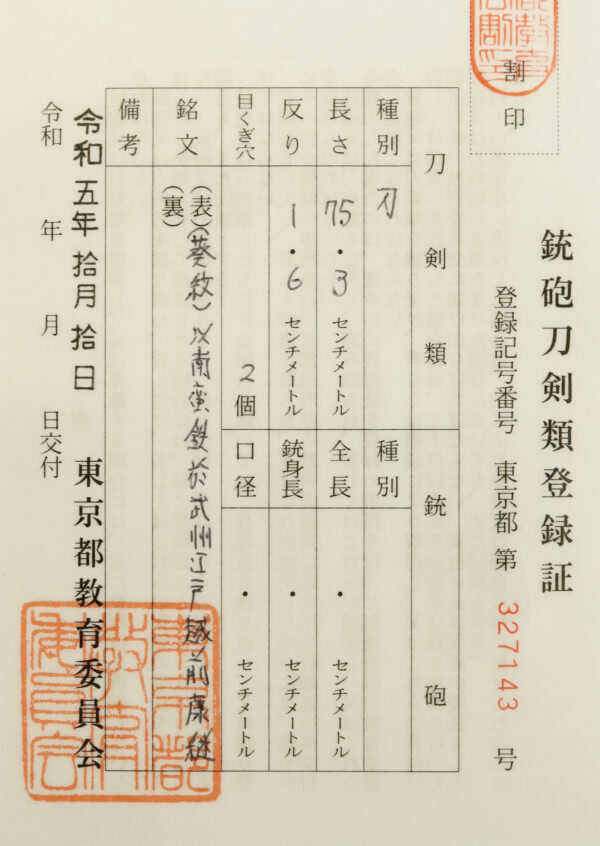 銃砲刀剣類登録証
割印
登録記号番号 東京都 第 327143 号
刀剣類 銃砲
種別 刀 種別
長さ 75.3 センチメートル 全長 ・ センチメートル
反り 1.6 センチメートル 銃身長 ・ センチメートル
目くぎ穴 2個 口径 ・ センチメートル
銘文 (表)(葵紋)以南蛮鉄於武州江戸越前康継
(裏)
備考
令和五年拾月拾日
令和 年 月 日交付
東京都教育委員会